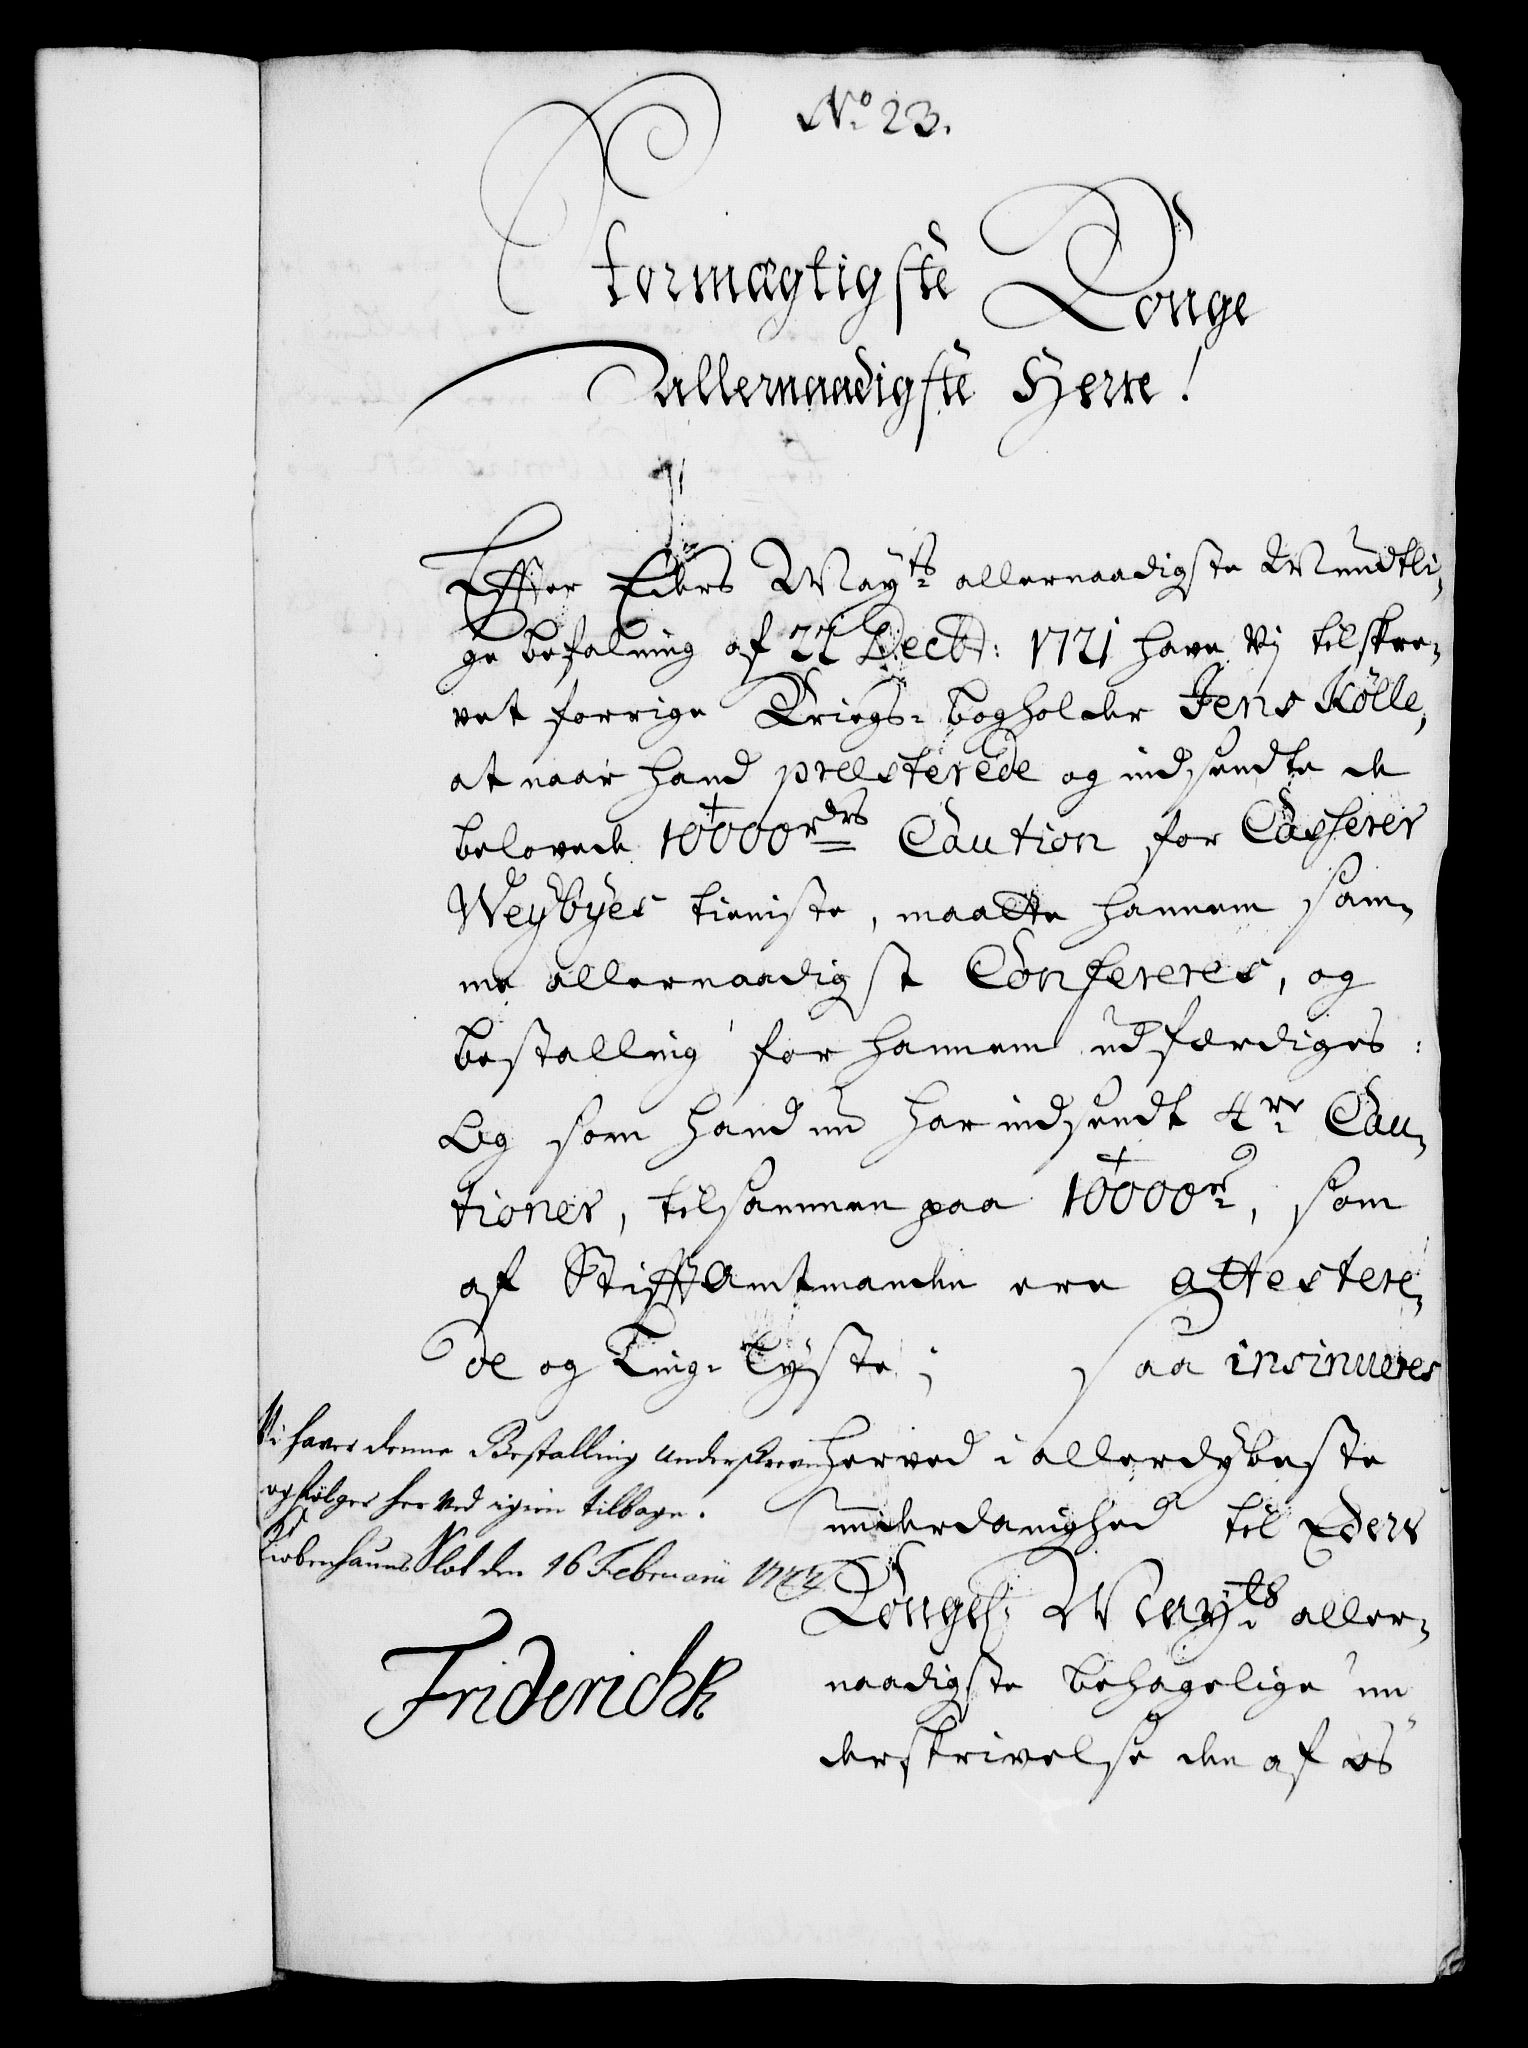 No. 23.
Stormægtigste Konge
allernaadigste Herre!
Effter Eders Mayts allernaadigste Mundtli-
ge befalning af 22 Decb: 1721 have vj tilskre-
vet forrige Kriegs-bogholder Jens Kölle,
at naar hand præsterede og indsendte de
belovede 10000 rdrs Caution for Casserer
Weybyes tieniste, maatte hannem sam-
me allernaadigst Confereres, og
bestalling for hannem udfærdiges:
Og som hand nu har indsendt 4re Cau-
tioner, tilsammen paa 10000 r, som
af Stifftamtmanden ere attestere-
de og Ting-lyste; saa insinueres
herved i allerdybeste
underdanighed til Eders
Kongel: Mayts aller-
naadigste behagelige un-
derskrivelse den af os
Vi haver denne Bestalling underskreven
og følger her ved igien tilbage.
Kiøbenhauns Slot den 16 Februarii 1722
Friderich R